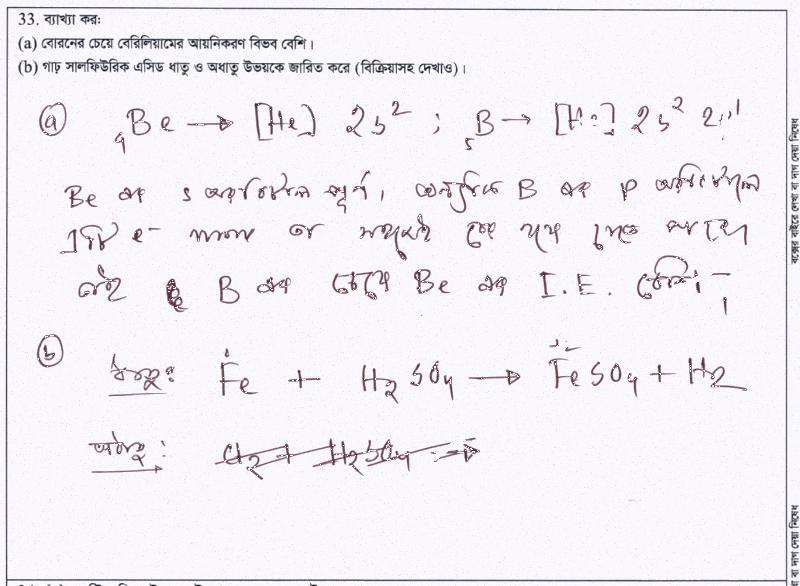 33. ব্যাখ্যা কর:
(a) বোরনের চেয়ে বেরিলিয়ামের আয়নিকরণ বিভব বেশি।
(b) গাঢ় সালফিউরিক এসিড ধাতু ও অধাতু উভয়কে জারিত করে (বিক্রিয়াসহ দেখাও)।
(a) ₄Be → [He] 2s² ; ₅B → [He] 2s² 2p¹
Be এর s অরবিটাল পূর্ণ। অন্যদিকে B এর p অরবিটালে
একটি e⁻ থাকায় তা সহজেই বের হয়ে যেতে পারে
তাই B এর চেয়ে Be এর I.E. বেশি।
(b) ধাতু: Fe + H₂SO₄ → FeSO₄ + H₂
অধাতু: H₂ + H₂SO₄ →
বক্সের বাইরে লেখা বা দাগ দেয়া নিষেধ
বা দাগ দেয়া নিষেধ